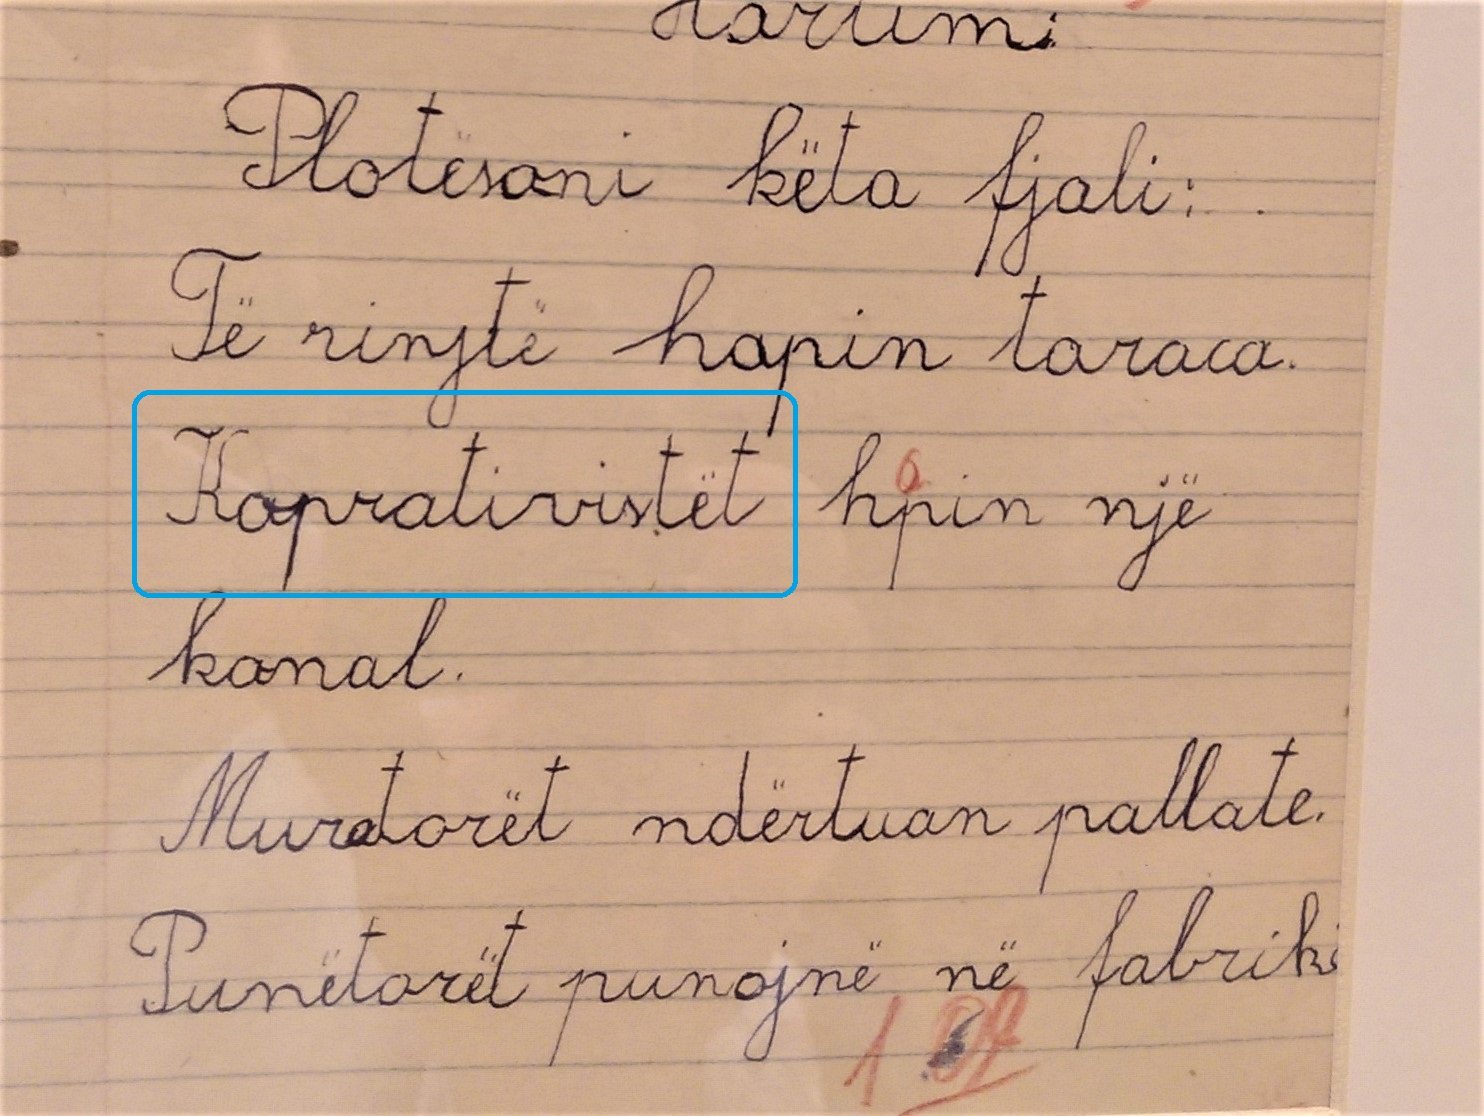 Hartimi
Plotësani këta fjali:
Të rinjtë hapin taraca.
Kaprativistët hpin një
a
kanal.
Muratorët ndërtuan pallate.
Punëtorët punojnë në fabrikë
1